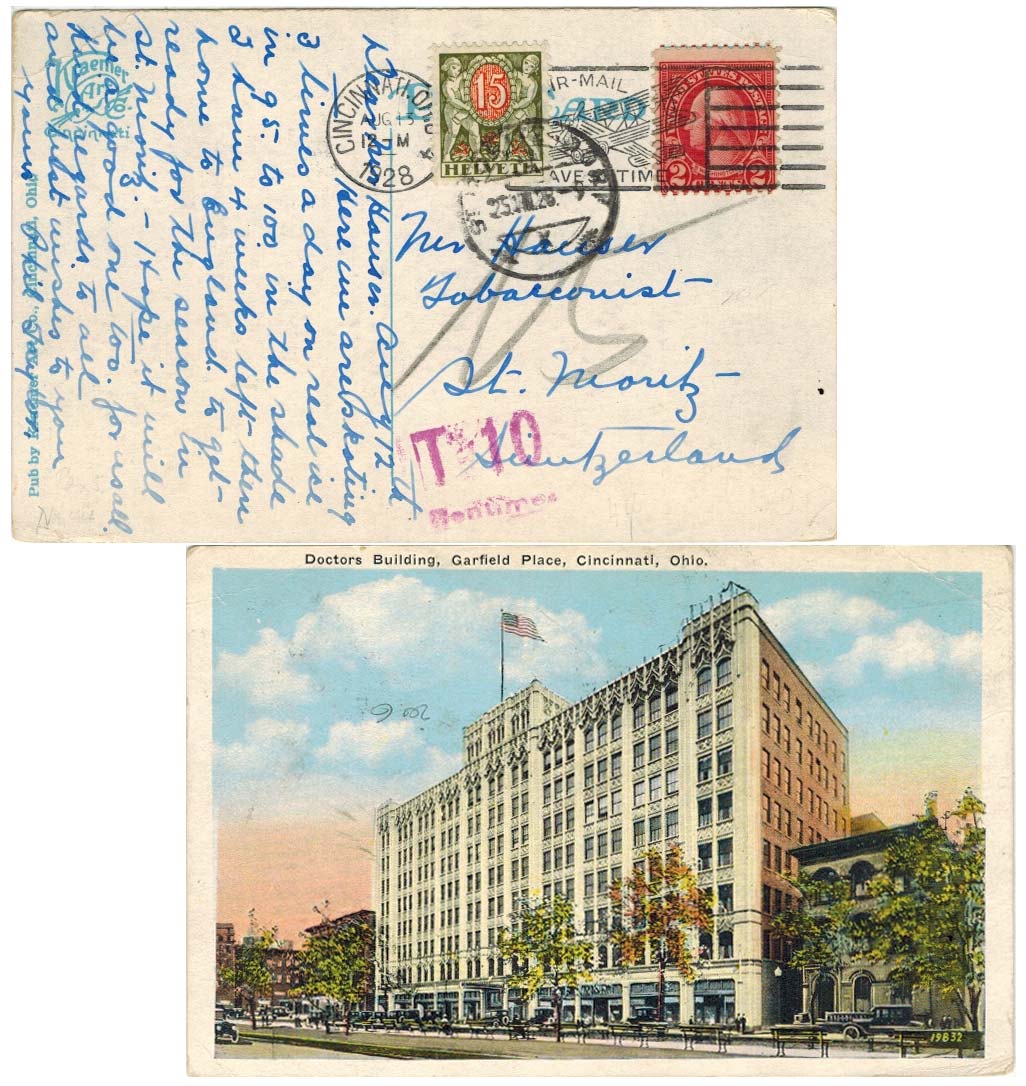 Aug 12th
Dear Mr Hauser.
Here we are skating
3 times a day on real ice
in 95. to 100. in the shade
I have 4 weeks left then
home to England. to get
ready for the season in
St. Moritz. - I Hope it will
be a good one too. for us all.
Kind regards. to all
and best wishes to you
yours
Kraemer
Art
Co.
Cincinnati
Pub by Kraemer Art Co., Cincinnati, Ohio
CINCINNATI, O.
AUG 13
12 M
1928
15
HELVETIA
AIR-MAIL
SAVES TIME
CARD
UNITED STATES POSTAGE
2 2
25.VIII.28.
Mr Hauser
Tobacconist
St. Moritz
Switzerland
T 10
Centimes
Doctors Building, Garfield Place, Cincinnati, Ohio.
19832